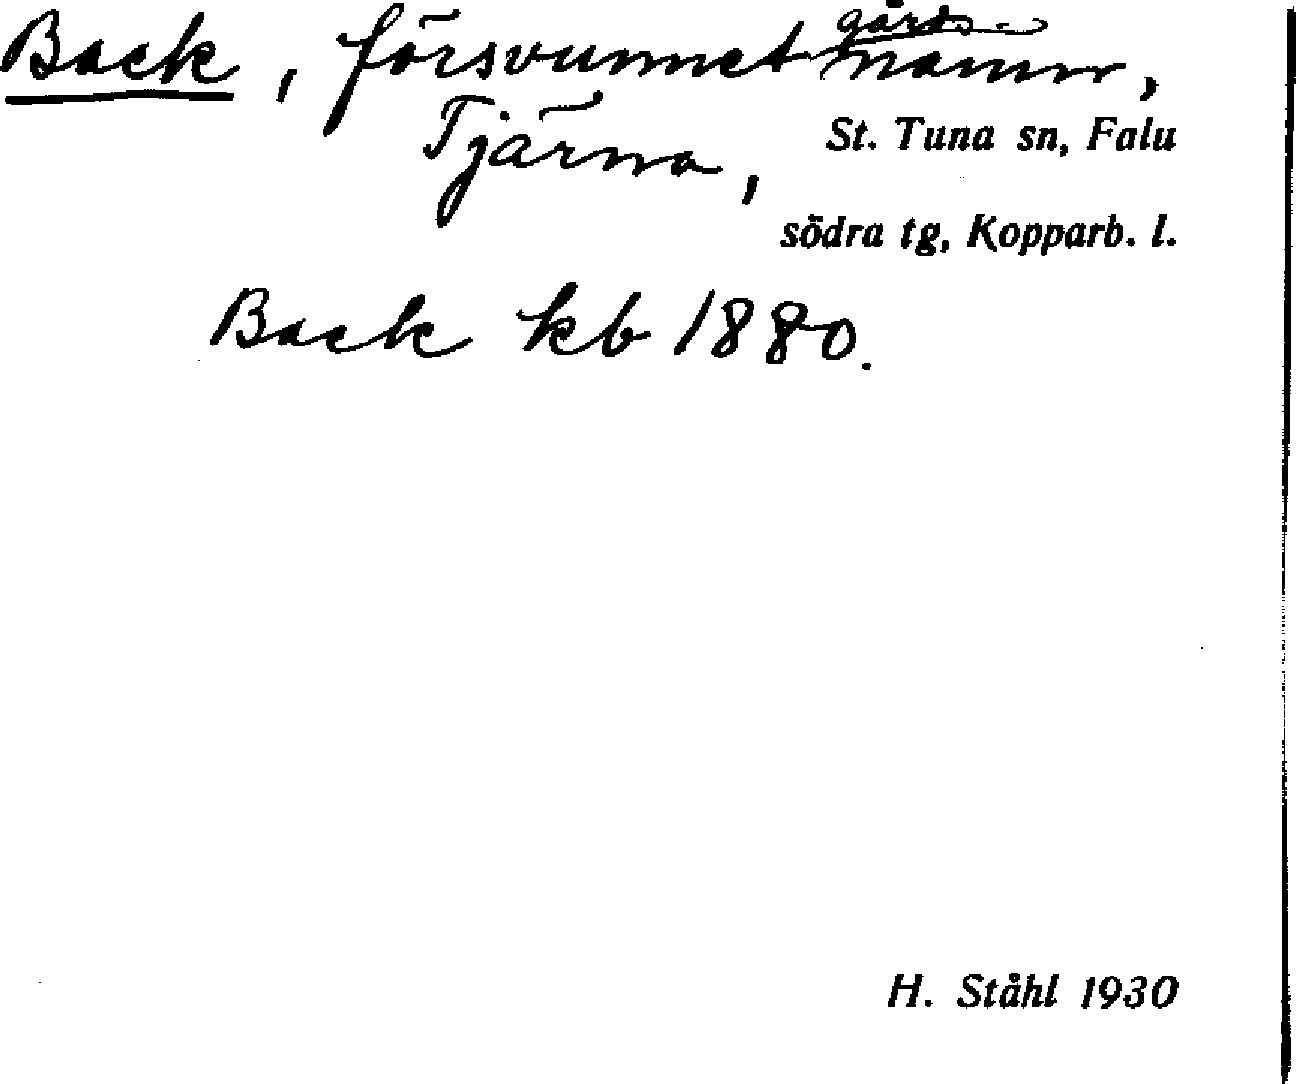 Back, försvunnet gårdsnamn,
Tjärna, St. Tuna sn, Falu
södra tg, Kopparb. l.
Back kb 1880.
H. Ståhl 1930